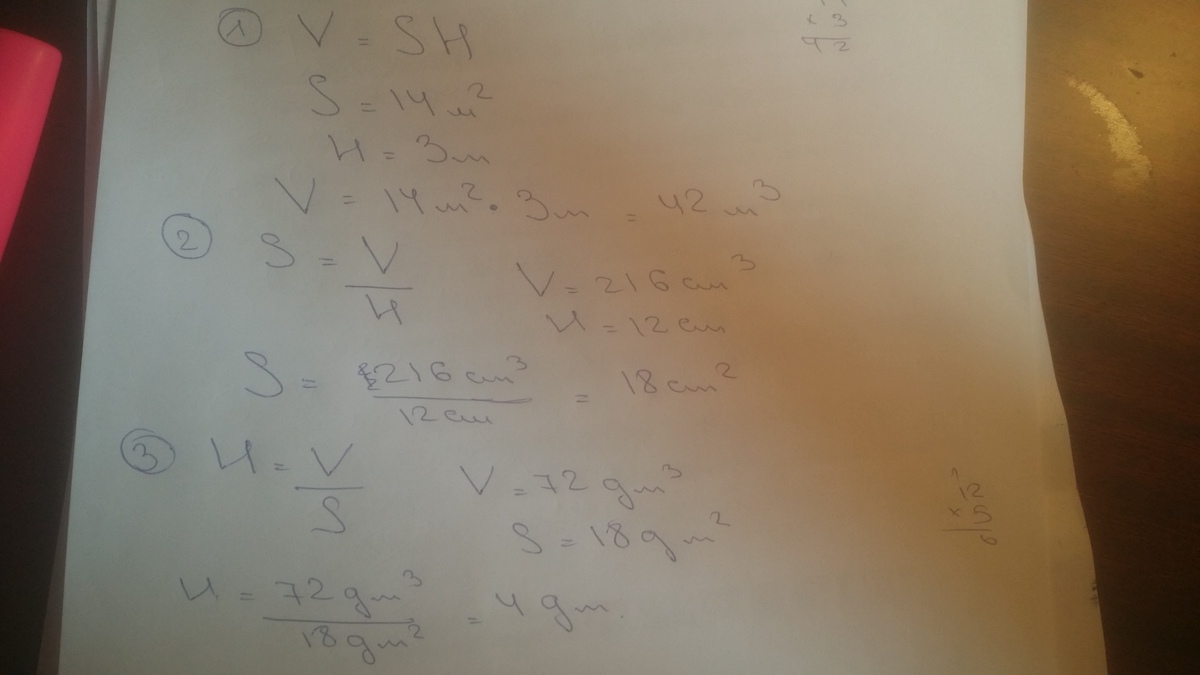 ① V = SH
× 3
42
S = 14 м²
H = 3 м
V = 14 м² · 3 м = 42 м³
② S = V/H
V = 216 см³
H = 12 см
S = 216 см³/12 см = 18 см²
③ H = V/S
V = 72 дм³
S = 18 дм²
1
12
× 5
6
H = 72 дм³/18 дм² = 4 дм.